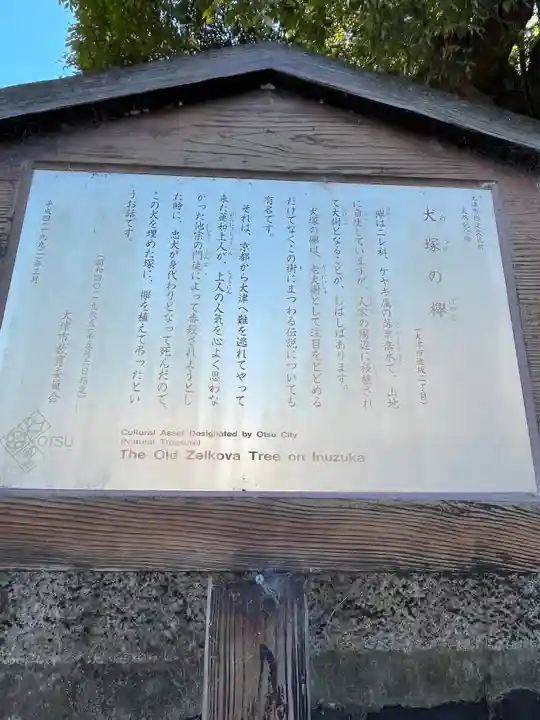 大津市指定文化財
天然記念物
犬塚の欅
のけやき
(大津市逢坂二丁目)
欅はニレ科、ケヤキ属の落葉喬木で、山地
に自生していますが、人家の周辺に移植され
て大樹となることが、しばしばあります。
犬塚の欅は、老大樹として注目をとどめる
だけでなくこの樹にまつわる伝説についても
有名です。
それは、京都から大津へ難を逃れてやって
来た蓮如上人が、上人の人気を心よく思わな
かった他宗の門徒によって毒殺されようとし
た時に、忠犬が身代わりとなって死んだので、
この犬を埋めた塚に、欅を植えて弔ったとい
うお話です。
大津市教育委員会
平成四(一九九二)年三月
OTSU
Cultural Asset Designated by Otsu City
(Natural Treasure)
The Old Zelkova Tree on Inuzuka